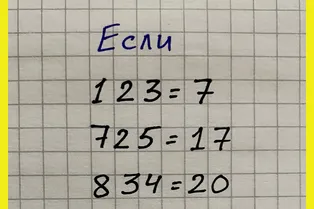 Если
123=7
725=17
834=20